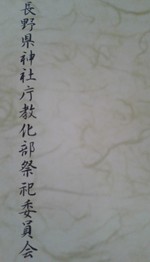 長野県神社庁教化部祭祀委員会